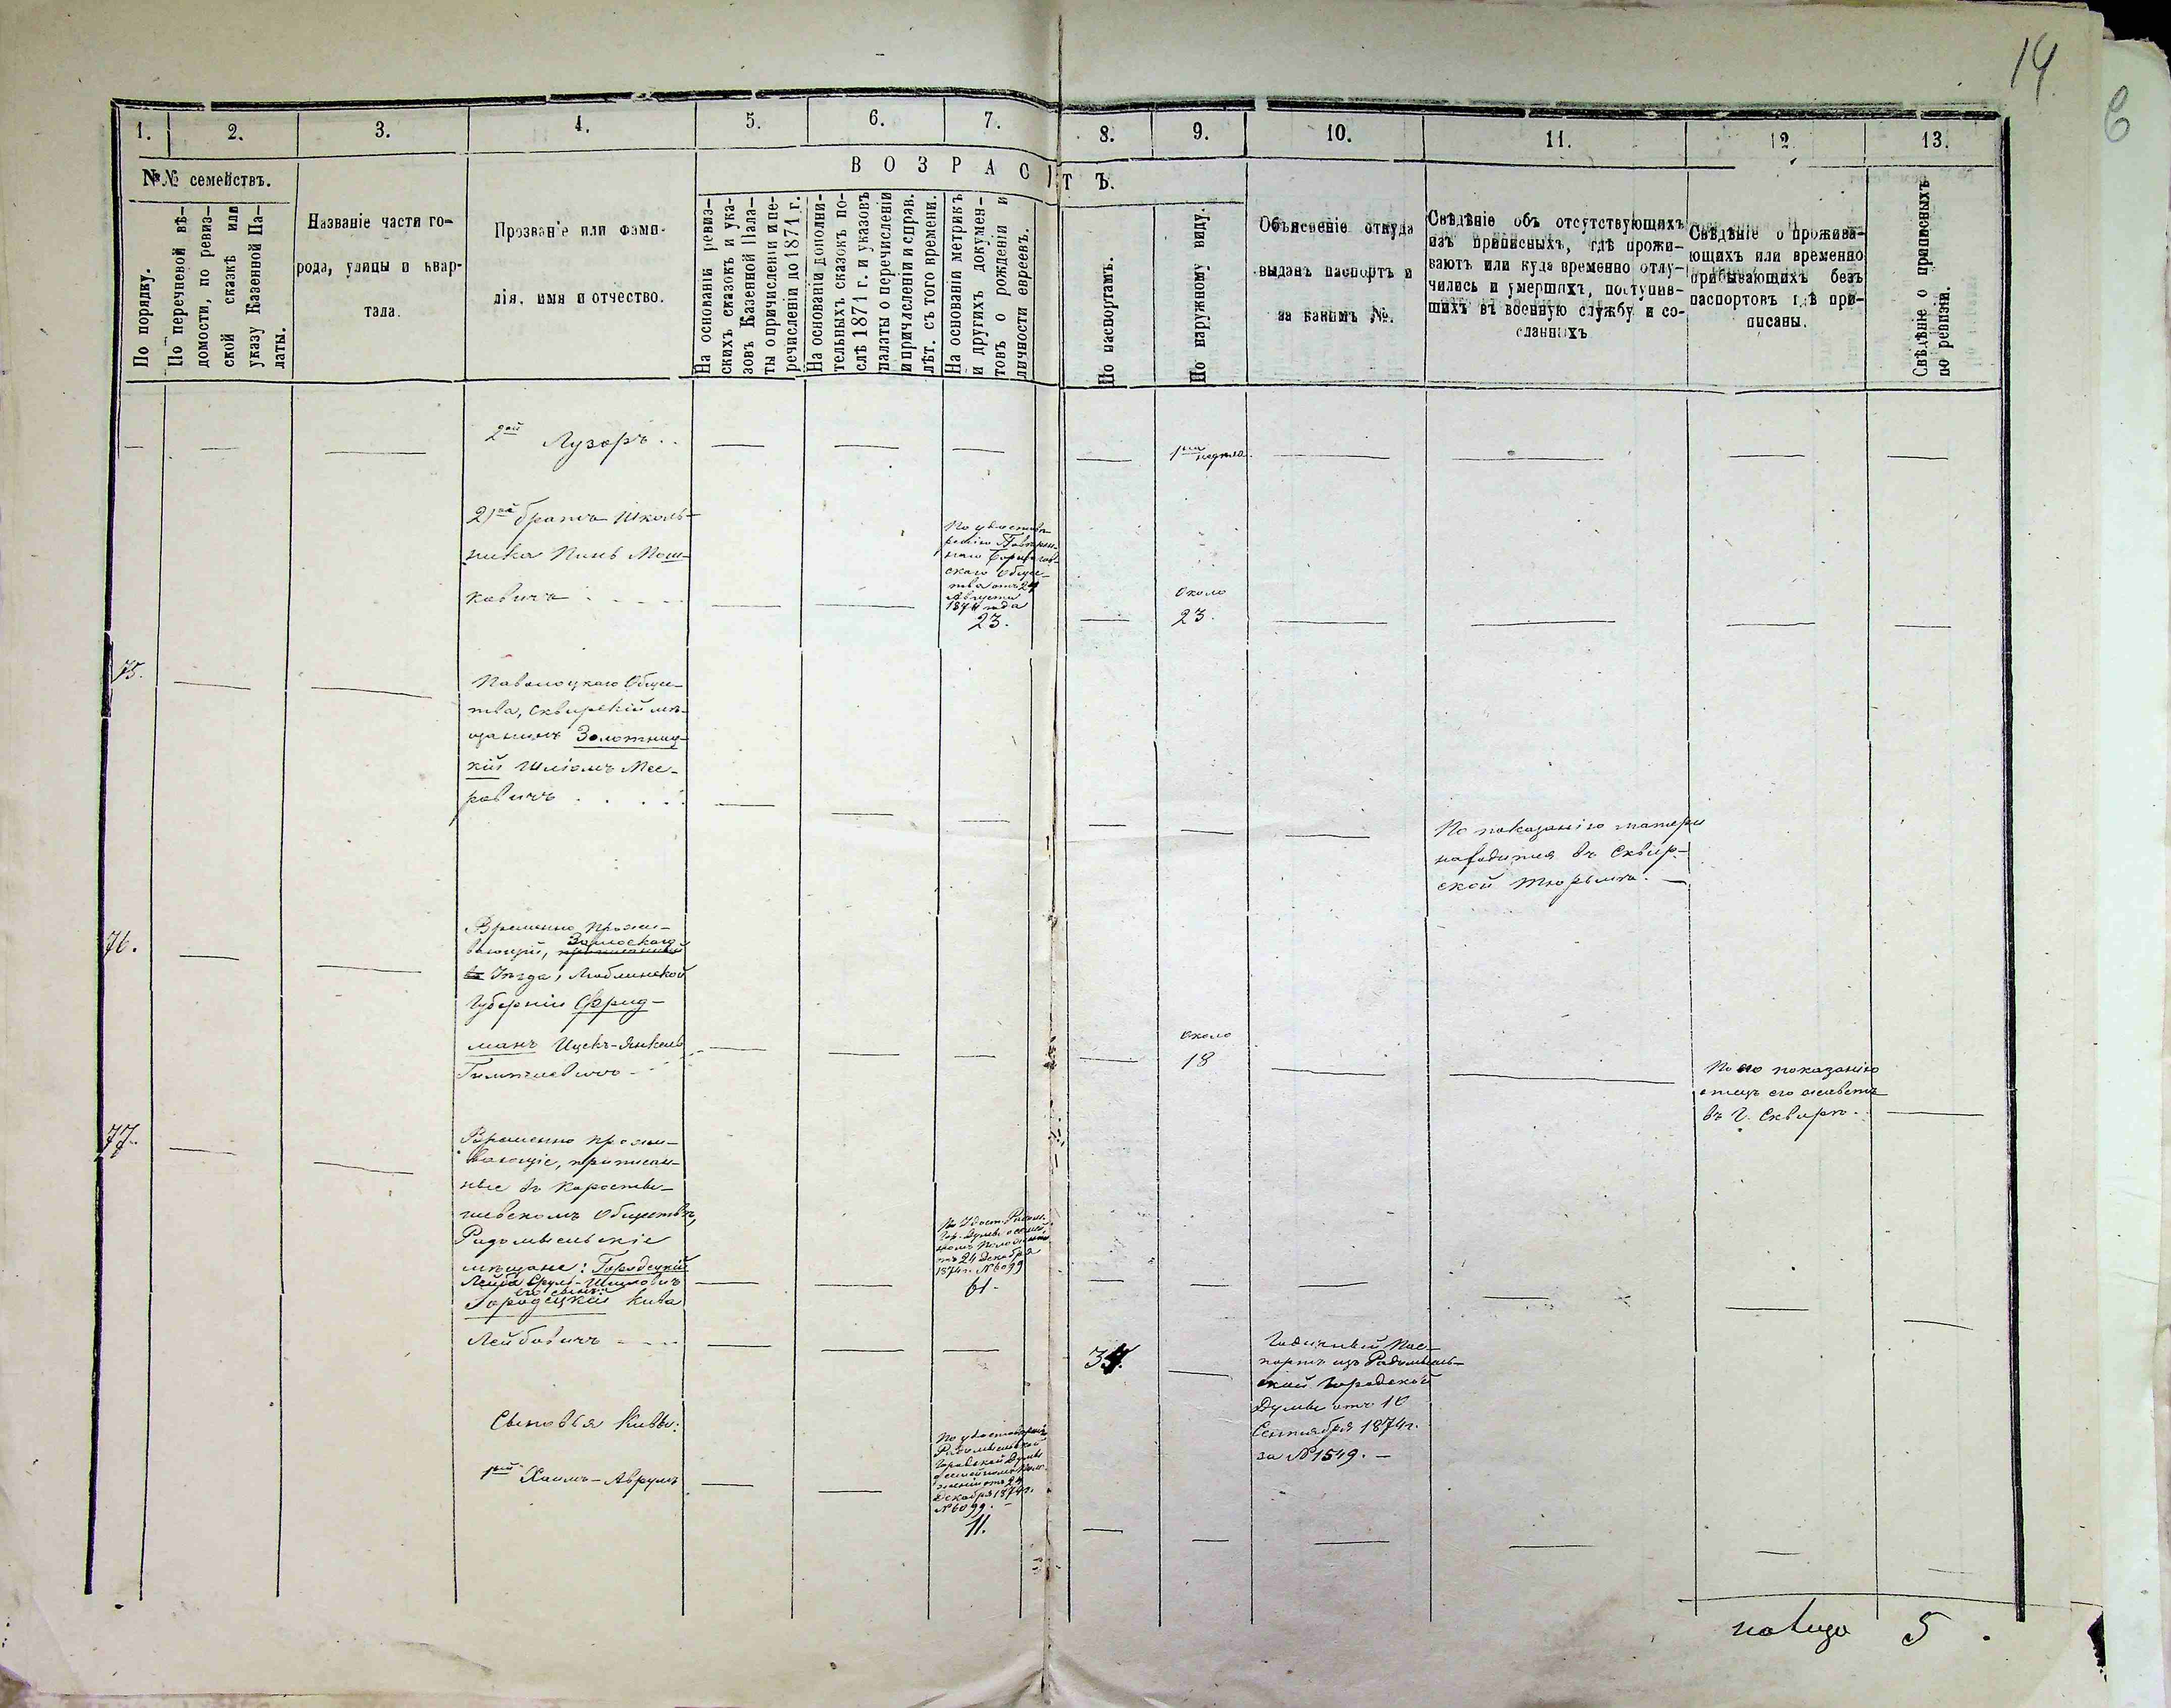 14
6
1. 2. 3. 4. 5. 6. 7. 8. 9. 10. 11. 12. 13.
ВОЗРАСТЪ.
№№ семействъ.
По порядку.
По перечневой вѣ-
домости, по ревиз-
ской сказкѣ или
указу Казенной Па-
латы.
Названіе части го-
рода, улицы и квар-
тала.
Прозваніе или фами-
лія, имя и отчество.
На основаніи ревиз-
скихъ сказокъ и ука-
зовъ Казенной Пала-
ты о причисленіи и пе-
речисленіи до 1871 г.
На основаніи дополни-
тельныхъ сказокъ по-
слѣ 1871 г. и указовъ
палаты о перечисленіи
и причисленіи и справ.
лѣт. съ того времени.
На основаніи метрикъ
и другихъ докумен-
товъ о рожденіи и
личности евреевъ.
По паспортамъ.
По наружному виду.
Объясненіе откуда
выданъ паспортъ и
за какимъ №.
Свѣдѣніе объ отсутствующихъ
изъ приписныхъ, гдѣ прожи-
ваютъ или куда временно отлу-
чились и умершихъ, поступив-
шихъ въ военную службу и со-
сланныхъ
Свѣдѣніе о прожива-
ющихъ или временно
прибывающихъ безъ
паспортовъ гдѣ при-
писаны.
Свѣдѣніе о приписныхъ
по ревизіи.
2ой Лузоръ . .
1на недѣля.
2)ой братъ Школь-
ника Пинь Мош-
ковичъ . . . .
скаго Обще-
ства отъ 24
Августа
1874 года
23.
Около
23.
75.
Паволоцкаго Обще-
тва, Сквирскій мѣ-
щанинъ Золотниц-
кій Шлiомъ Мее-
ровичъ . . . .
По показанію матери
находится въ Сквир-
ской тюрьмѣ. —
76.
Временно прожи-
вающій, Замоскаго
Уѣзда, Люблинской
Губерніи Фрид-
манъ Ицекъ-Янкель
около
18
По его показанію
отецъ его живетъ
въ Г. Сквирѣ.
77.
Временно прожи-
вающіе, приписан-
ные въ Коросты-
шевскомъ Обществѣ,
Радомысльскіе
мѣщане: Городецкій
Лейба Сруль-Шицловичъ
его сынъ:
Городецкій Кива
Лейбовичъ . . . .
отъ 24 Декабря
1874 г. № 6099
61.
34.
Годичный Пас-
портъ изъ Радомысль-
ской Городской
Думы отъ 10
Сентября 1874 г.
за № 1549. —
Сыновья Кивы:
1ый Хаимъ-Аврумъ
По удостовѣренію
Радомысльской
Городской Думы
о семейномъ поло-
женіи отъ 24
Декабря 1874 г.
№ 6099. —
11.
налицо 5.